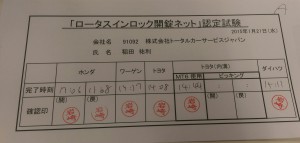 「ロータスインロック開錠ネット」認定試験
2015年1月21日(水)
会社名 91092 株式会社トータルカーサービスジャパン
氏 名 稲田 祐利
ホンダ ワーゲン トヨタ トヨタ(内溝) ダイハツ
MTS使用 ピッキング
完了時刻 11:08 13:17 14:08 14:44
確認印 (開) (閉) (開) (閉)